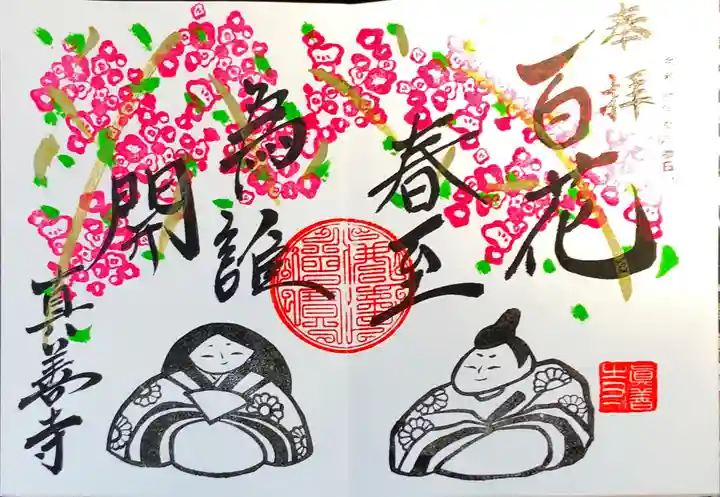 奉拝
百花
春至
為誰
開
真善寺
眞善